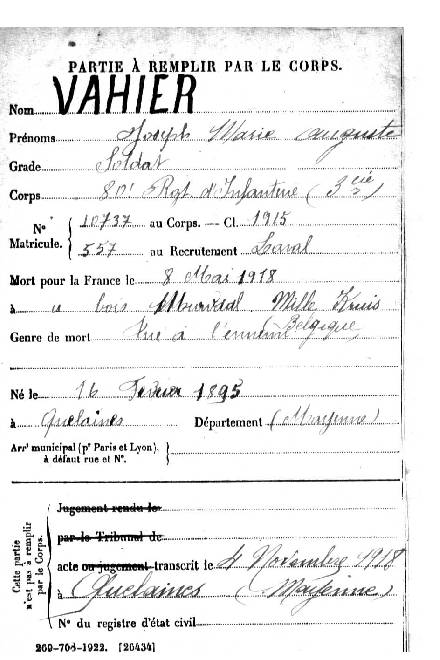 PARTIE À REMPLIR PAR LE CORPS.
Nom VAHIER
Prénoms Joseph Marie Auguste
Grade Soldat
Corps 80e Rgt d'Infanterie (3e Cie)
N° Matricule. { 10737 au Corps. — Cl. 1915
557 au Recrutement Laval
Mort pour la France le 8 Mai 1918
à bois Mille Kruis
(Belgique)
Genre de mort Tué à l'ennemi
Né le 16 Février 1895
à Quelaines Département (Mayenne)
Arrt municipal (pr Paris et Lyon). }
à défaut rue et N°.
Cette partie n'est pas à remplir par le Corps.
Jugement rendu le
par le Tribunal de
acte ou jugement transcrit le 4 Novembre 1918
à Quelaines (Mayenne)
N° du registre d'état civil
269-708-1922. [26434]